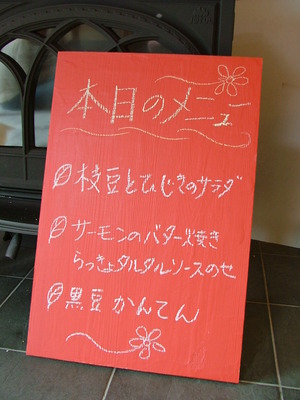 本日のメニュー
枝豆とひじきのサラダ
サーモンのバター焼き
らっきょタルタルソースのせ
黒豆かんてん